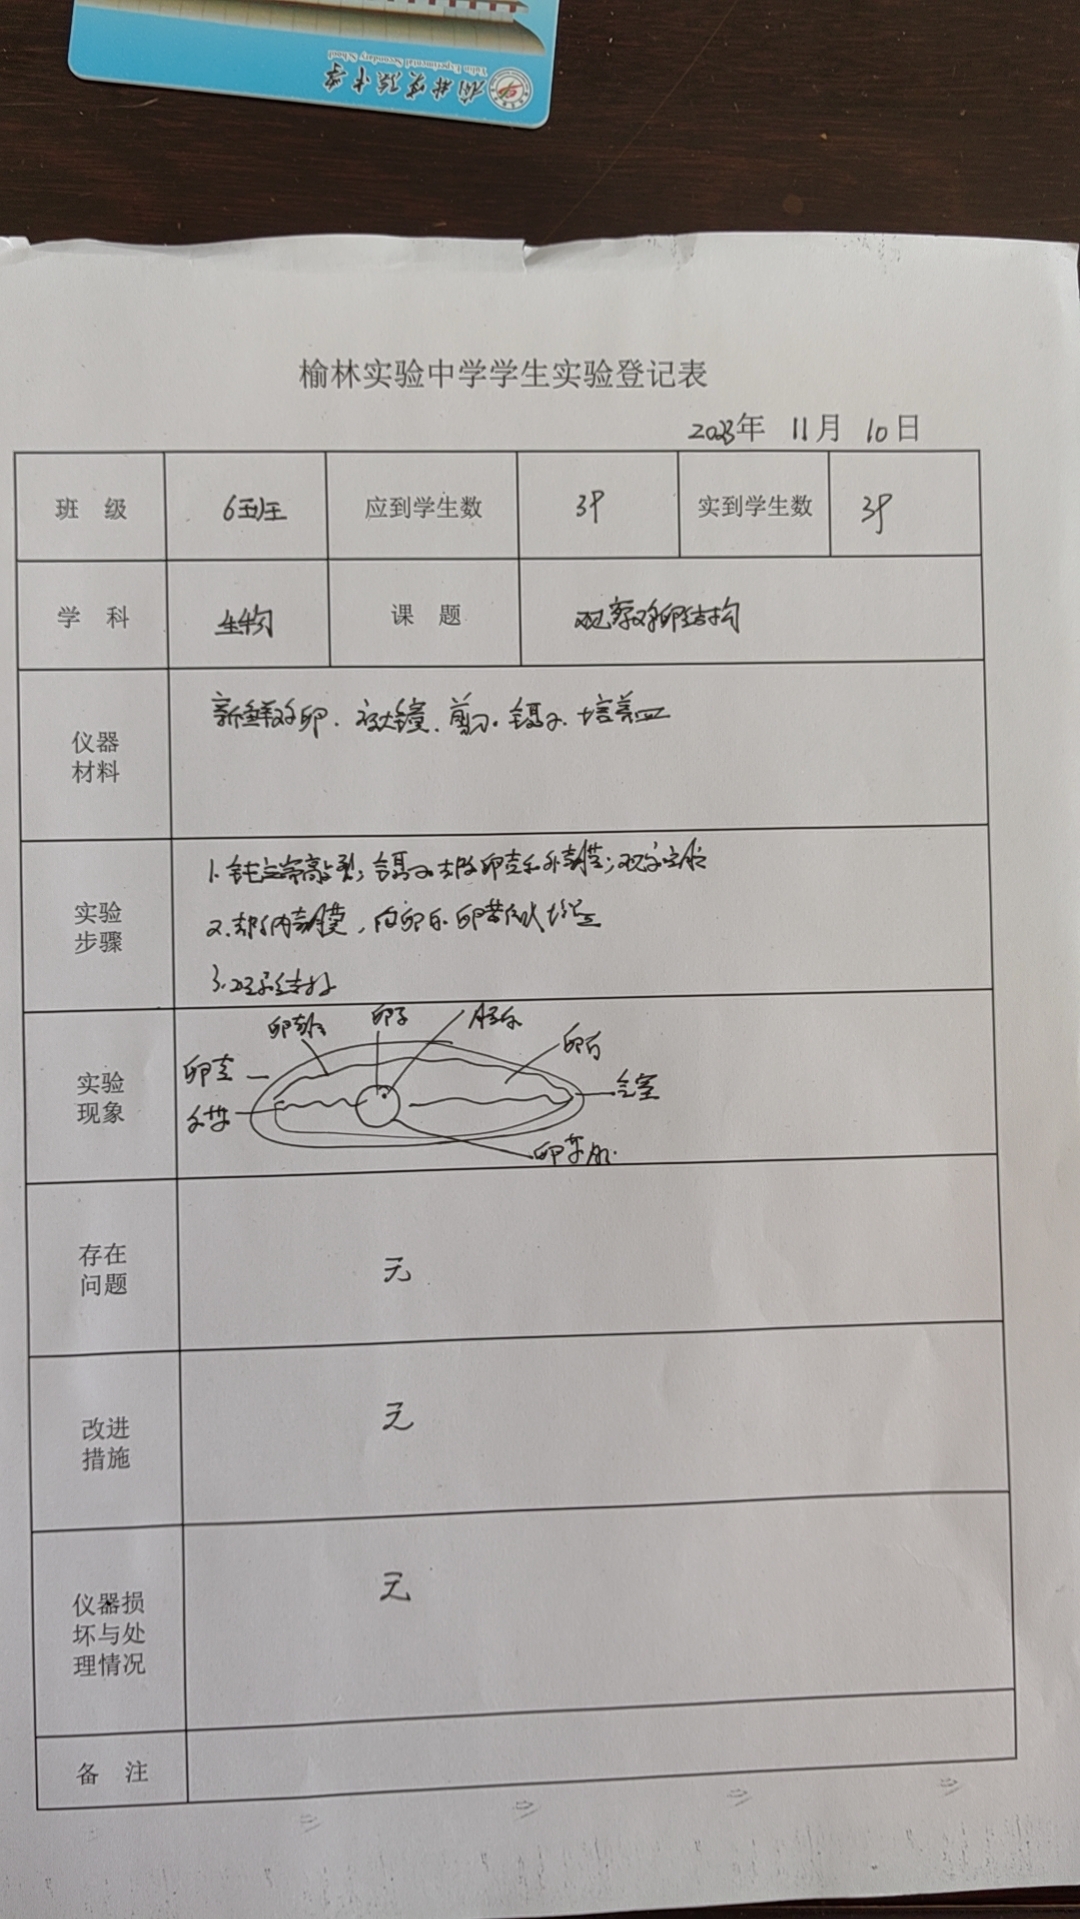 榆林实验中学
Yulin Experimental Secondary School
榆林实验中学学生实验登记表
2023年 11月 10日
班 级 6班 应到学生数 39 实到学生数 39
学 科 生物 课 题 观察鸡卵结构
仪器 材料 新鲜鸡卵、放大镜、剪刀、镊子、培养皿
实验 步骤
1. 钝端敲裂;镊子去除卵壳和外壳膜;观察
2. 内壳膜,
3. 观察结构
实验 现象
卵壳膜 胚盘
卵白
卵壳 气室
卵黄膜
存在 问题 无
改进 措施 无
仪器损 坏与处 理情况 无
备 注